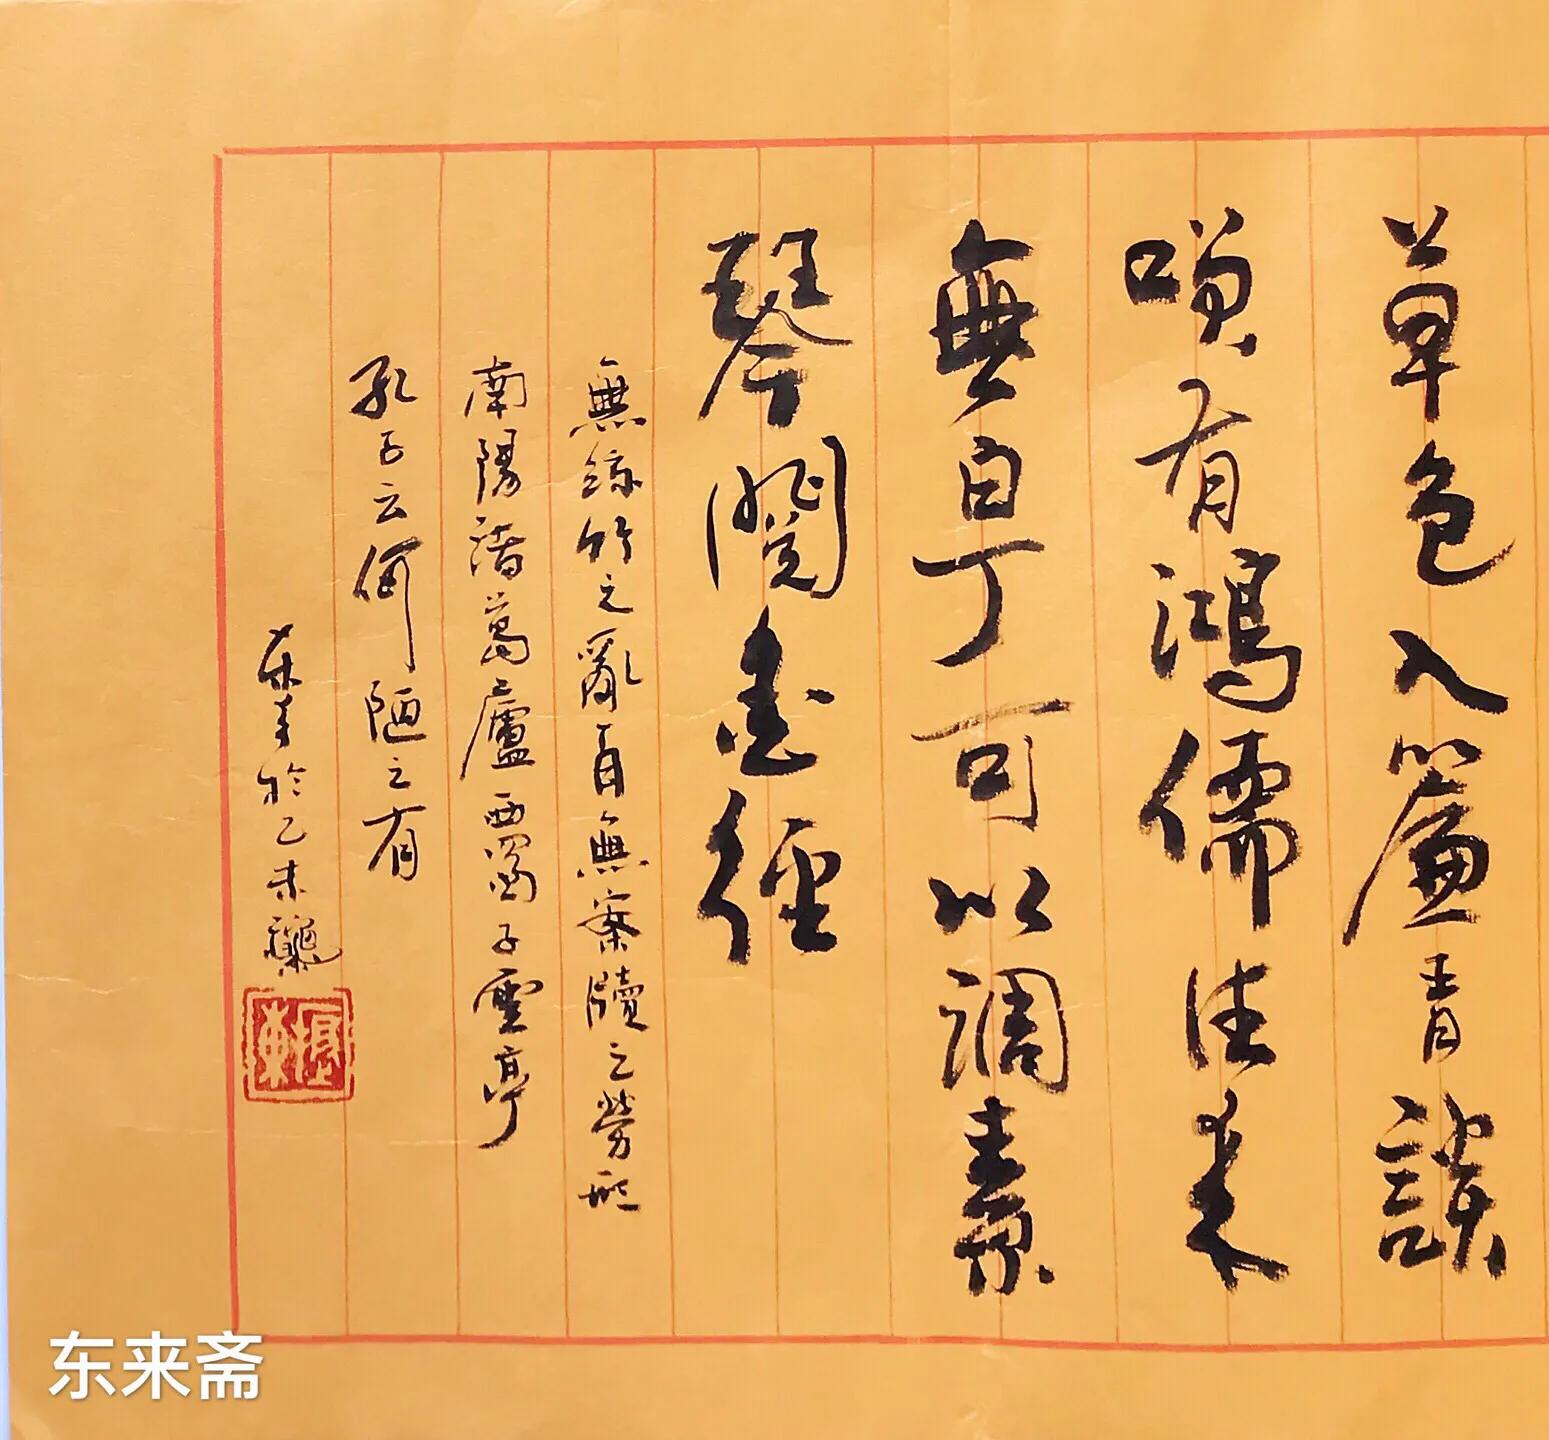 草色入簾青談
咲有鴻儒往来
無白丁可以調素
琴閱金經
無絲竹之亂耳無案牘之勞形
南陽諸葛廬西蜀子雲亭
孔子云何陋之有
於乙未龝
东来斋